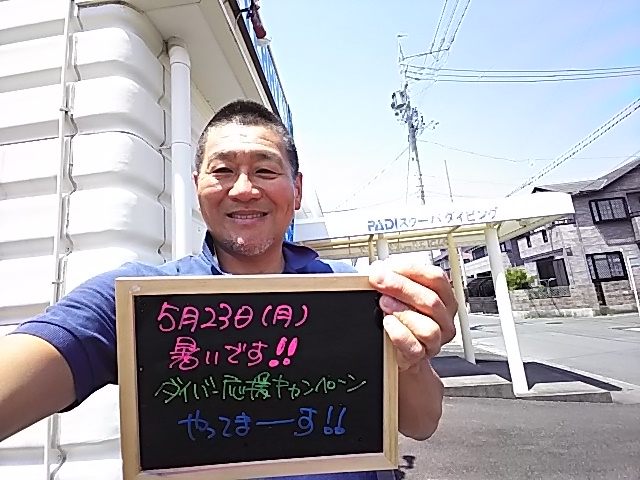 PADIスクーバダイビング
5月23日(月)
暑いです!!
ダイバー応援キャンペーン
やってまーす!!